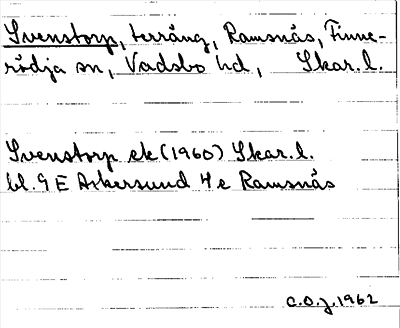 Svenstorp, terräng, Ramsnäs, Finne-
rödja sn, Vadsbo hd, Skar. l.
Svenstorp ek (1960) Skar. l.
bl. 9 E Askersund 4 e Ramsnäs
C.O.J. 1962